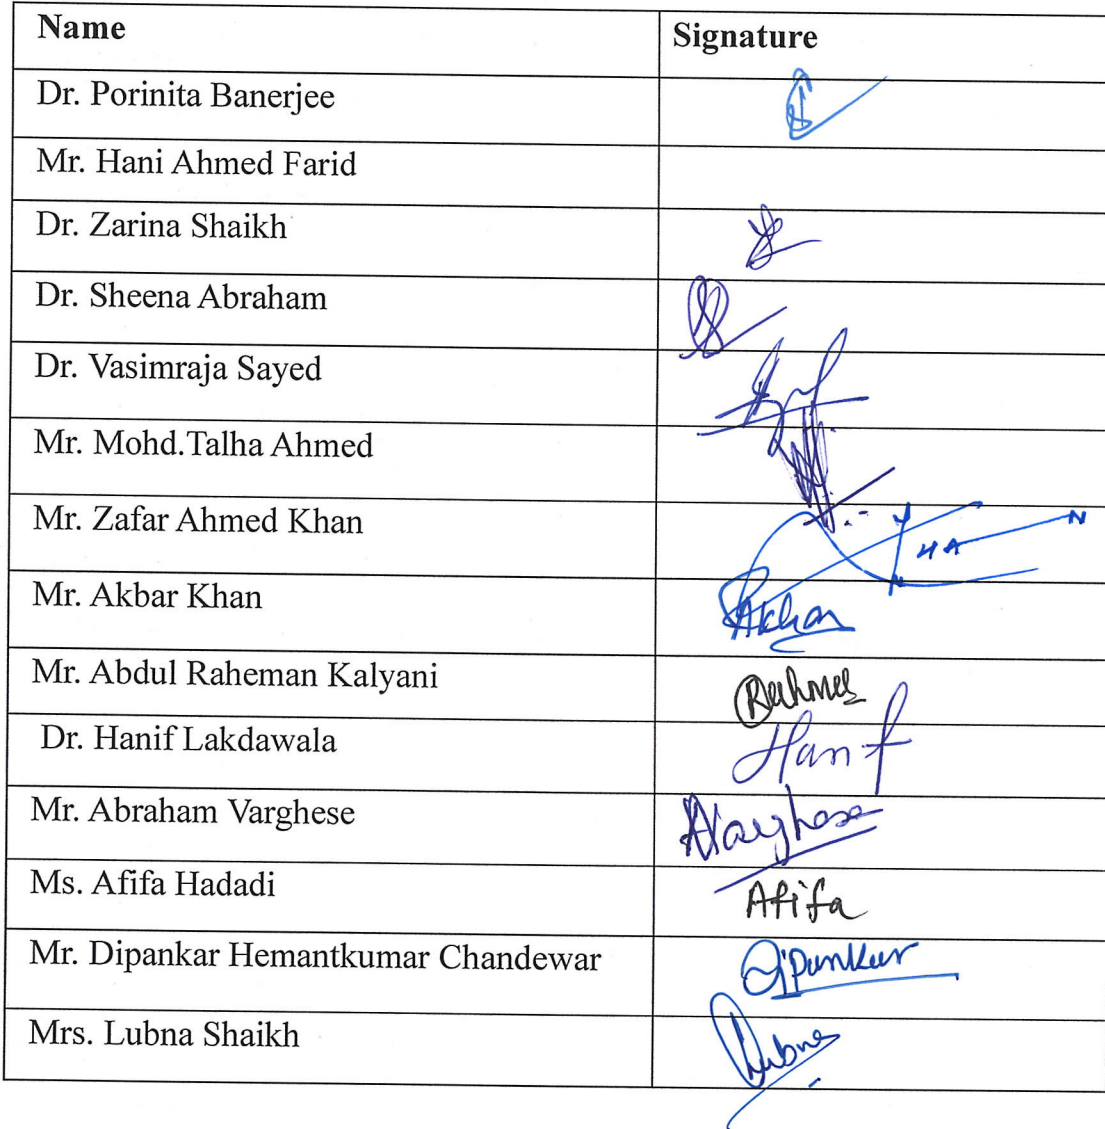 Name Signature
Dr. Porinita Banerjee
Mr. Hani Ahmed Farid
Dr. Zarina Shaikh
Dr. Sheena Abraham
Dr. Vasimraja Sayed
Mr. Mohd.Talha Ahmed
Mr. Zafar Ahmed Khan
Mr. Akbar Khan
Mr. Abdul Raheman Kalyani
Dr. Hanif Lakdawala Hanif
Mr. Abraham Varghese AVarghese
Ms. Afifa Hadadi Afifa
Mr. Dipankar Hemantkumar Chandewar Dipankar
Mrs. Lubna Shaikh Lubna